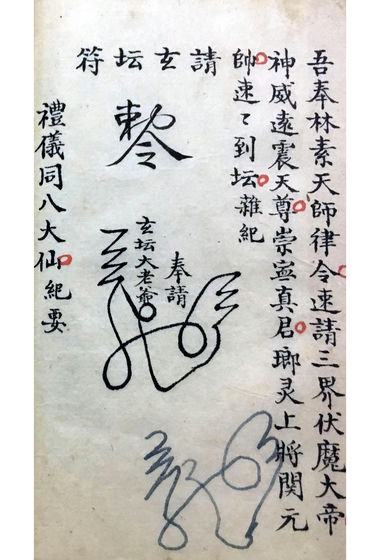 吾奉林素天師律令速請三界伏魔大帝
神威遠震天尊崇寍真君瑯灵上將関元
帥速〻到坛雜紀
請玄坛符
敕令
奉請
玄坛大老爺
禮儀同八大仙紀要